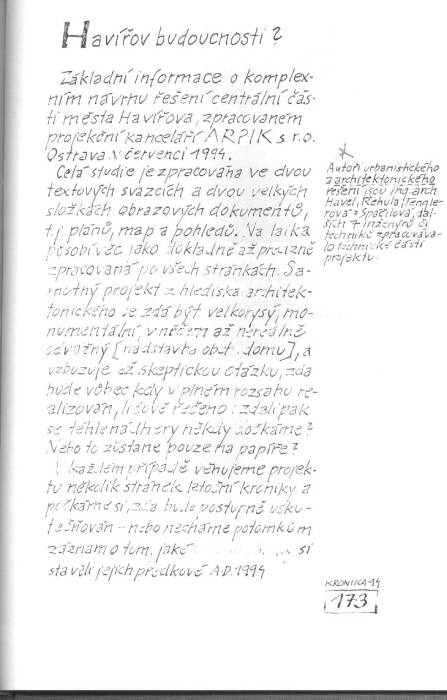 Havířov budoucnosti?
Základní informace o komplex-
ním návrhu řešení centrální čás-
ti města Havířova, zpracovaném
projekční kanceláří ARPIK s.r.o.
Ostrava v červenci 1994.
Celá studie je zpracována ve dvou
textových svazcích a dvou velkých
složkách obrazových dokumentů,
t.j. plánů, map a pohledů. Na laika
působí věc jako důkladně až precizně
zpracovaná po všech stránkách. Sa-
motný projekt z hlediska architek-
tonického se zdá být velkorysý, mo-
numentální, v něčem až nereálně
odvážný [nadstavba obch. domu], a
vzbuzuje až skeptickou otázku, zda
bude vůbec kdy v plném rozsahu re-
alizován, lidově řečeno: zdali pak
se téhle nádhery někdy dočkáme?
Nebo to zůstane pouze na papíře?
V každém případě věnujeme projek-
tu několik stránek letošní kroniky a
počkáme si, zda bude postupně usku-
tečňován - nebo necháme potomkům
záznam o tom, jaké si
stavěli jejich předkové A.D. 1994
*
Autoři urbanistického
a architektonického
řešení jsou ing. arch
Havel, Řehula, Tengle-
rová a Spáčilová, dal-
ších 7 inženýrů či
techniků zpracováva-
lo technické části
projektu.
KRONIKA 94
173